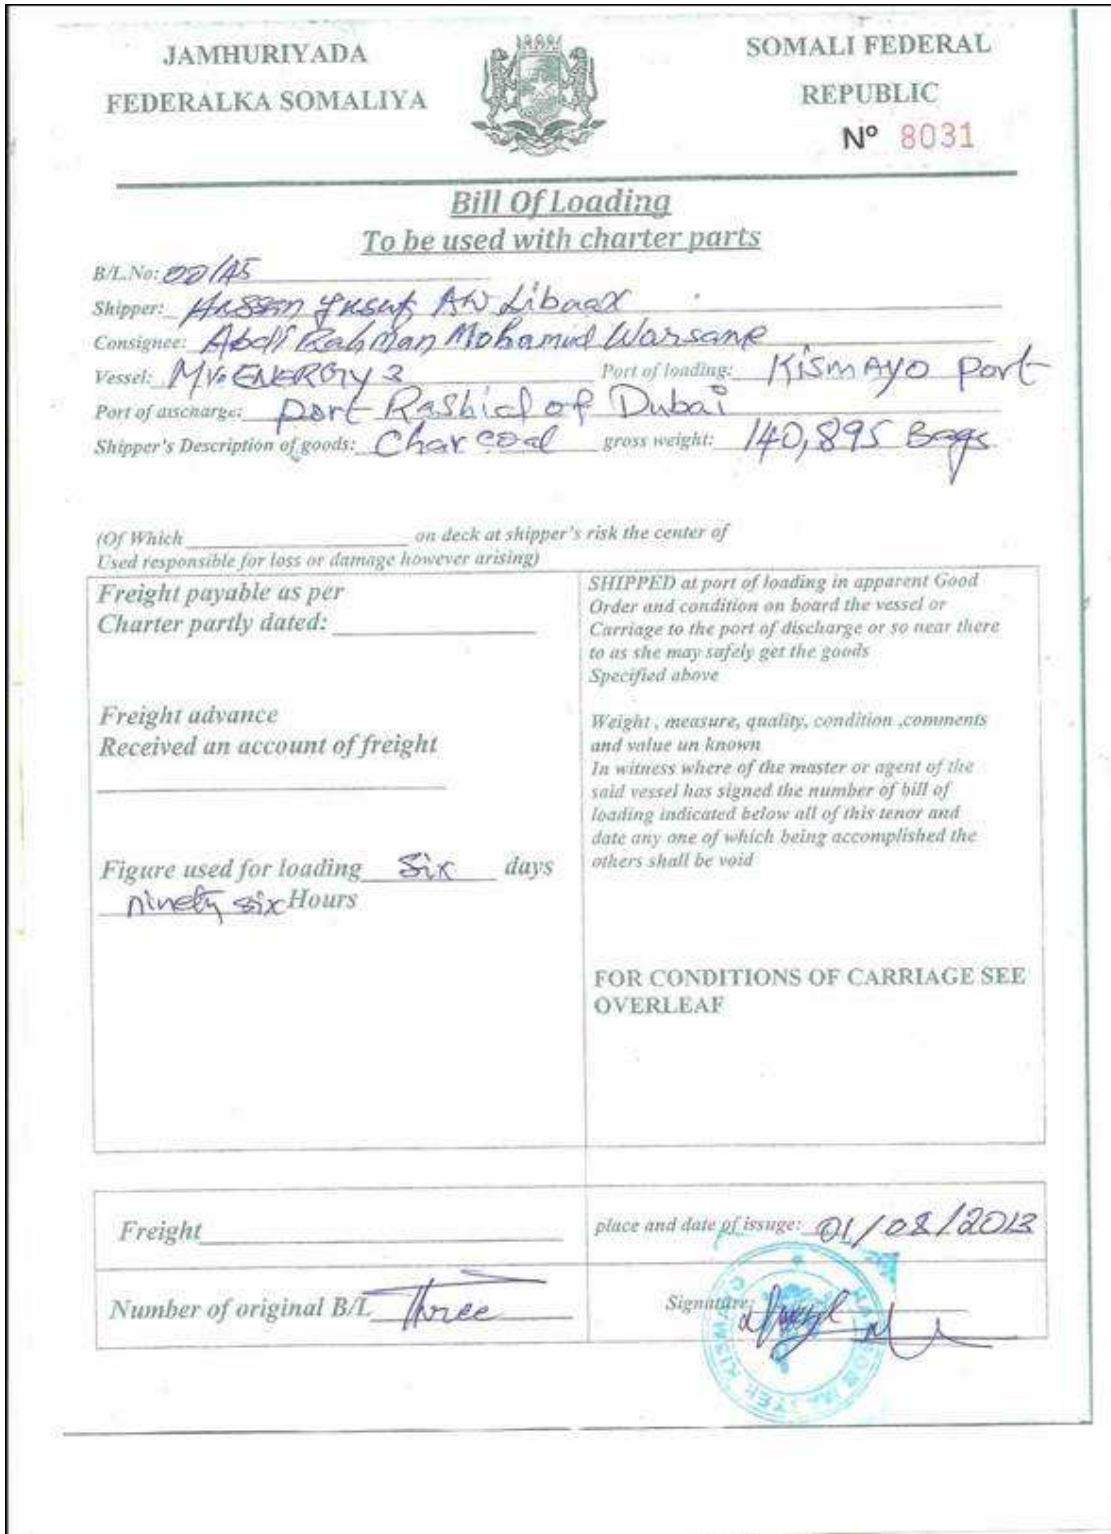 JAMHURIYADA
FEDERALKA SOMALIYA
SOMALI FEDERAL
REPUBLIC
Nº 8031
Bill Of Loading
To be used with charter parts
B/L.No: 00/A5
Shipper: Hassan Yusuf AW Libaax
Consignee: Abdi Rahman Mohamud Warsame
Vessel: MV. ENERGY 3 Port of loading: KismAyo port
Port of discharge: port Rashid of Dubai
Shipper's Description of goods: Charcoal gross weight: 140,895 Bags
(Of Which ____ on deck at shipper's risk the center of
Used responsible for loss or damage however arising)
Freight payable as per
Charter partly dated:
Freight advance
Received an account of freight
Figure used for loading Six days
ninety six Hours
SHIPPED at port of loading in apparent Good
Order and condition on board the vessel or
Carriage to the port of discharge or so near there
to as she may safely get the goods
Specified above
Weight , measure, quality, condition ,comments
and value un known
In witness where of the master or agent of the
said vessel has signed the number of bill of
loading indicated below all of this tenor and
date any one of which being accomplished the
others shall be void
FOR CONDITIONS OF CARRIAGE SEE
OVERLEAF
Freight
place and date of issuge: 01/08/2013
Number of original B/L Three
Signature: